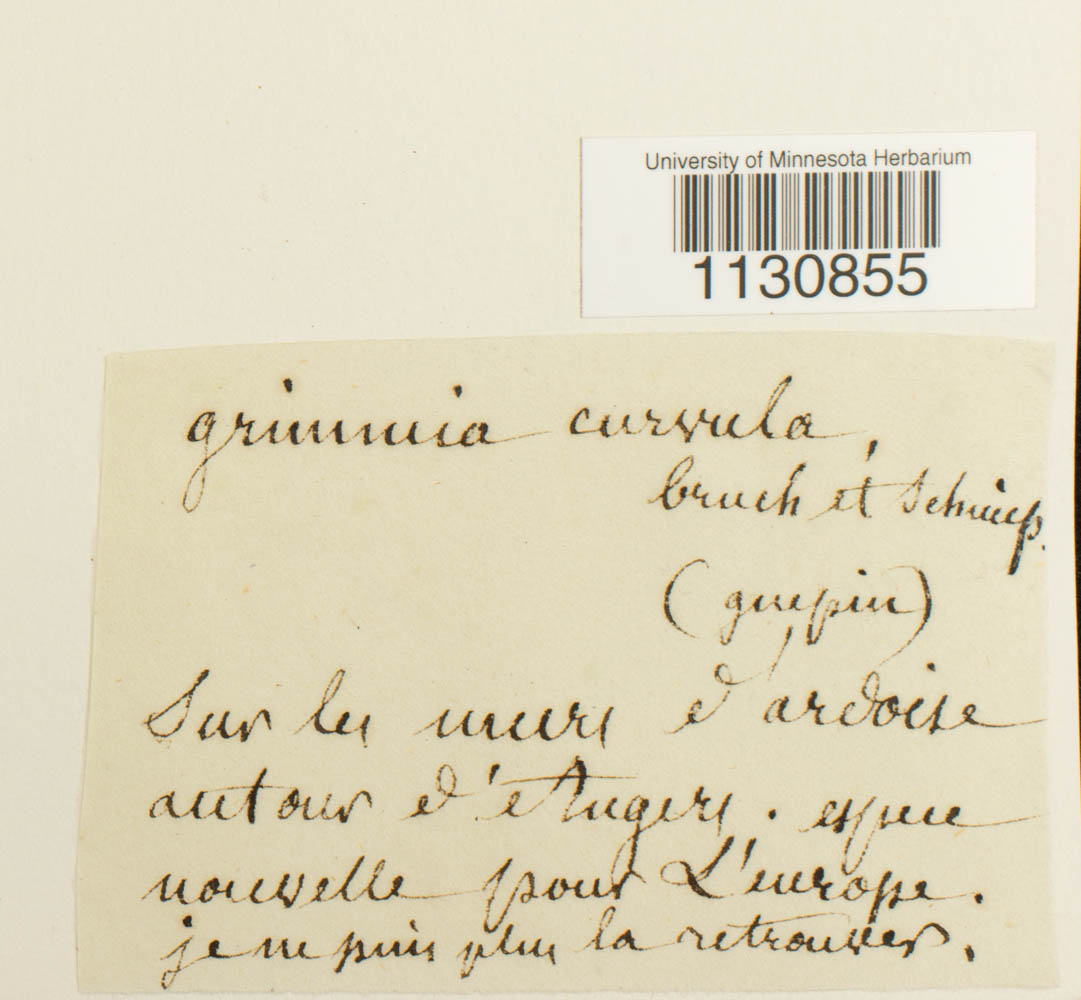 University of Minnesota Herbarium
1130855
grimmia curvula,
bruch et Schimp.
(guepin)
Sur les murs d'ardoise
autour d'Angers. espece
nouvelle pour L'europe.
je ne puis plus la retrouver.